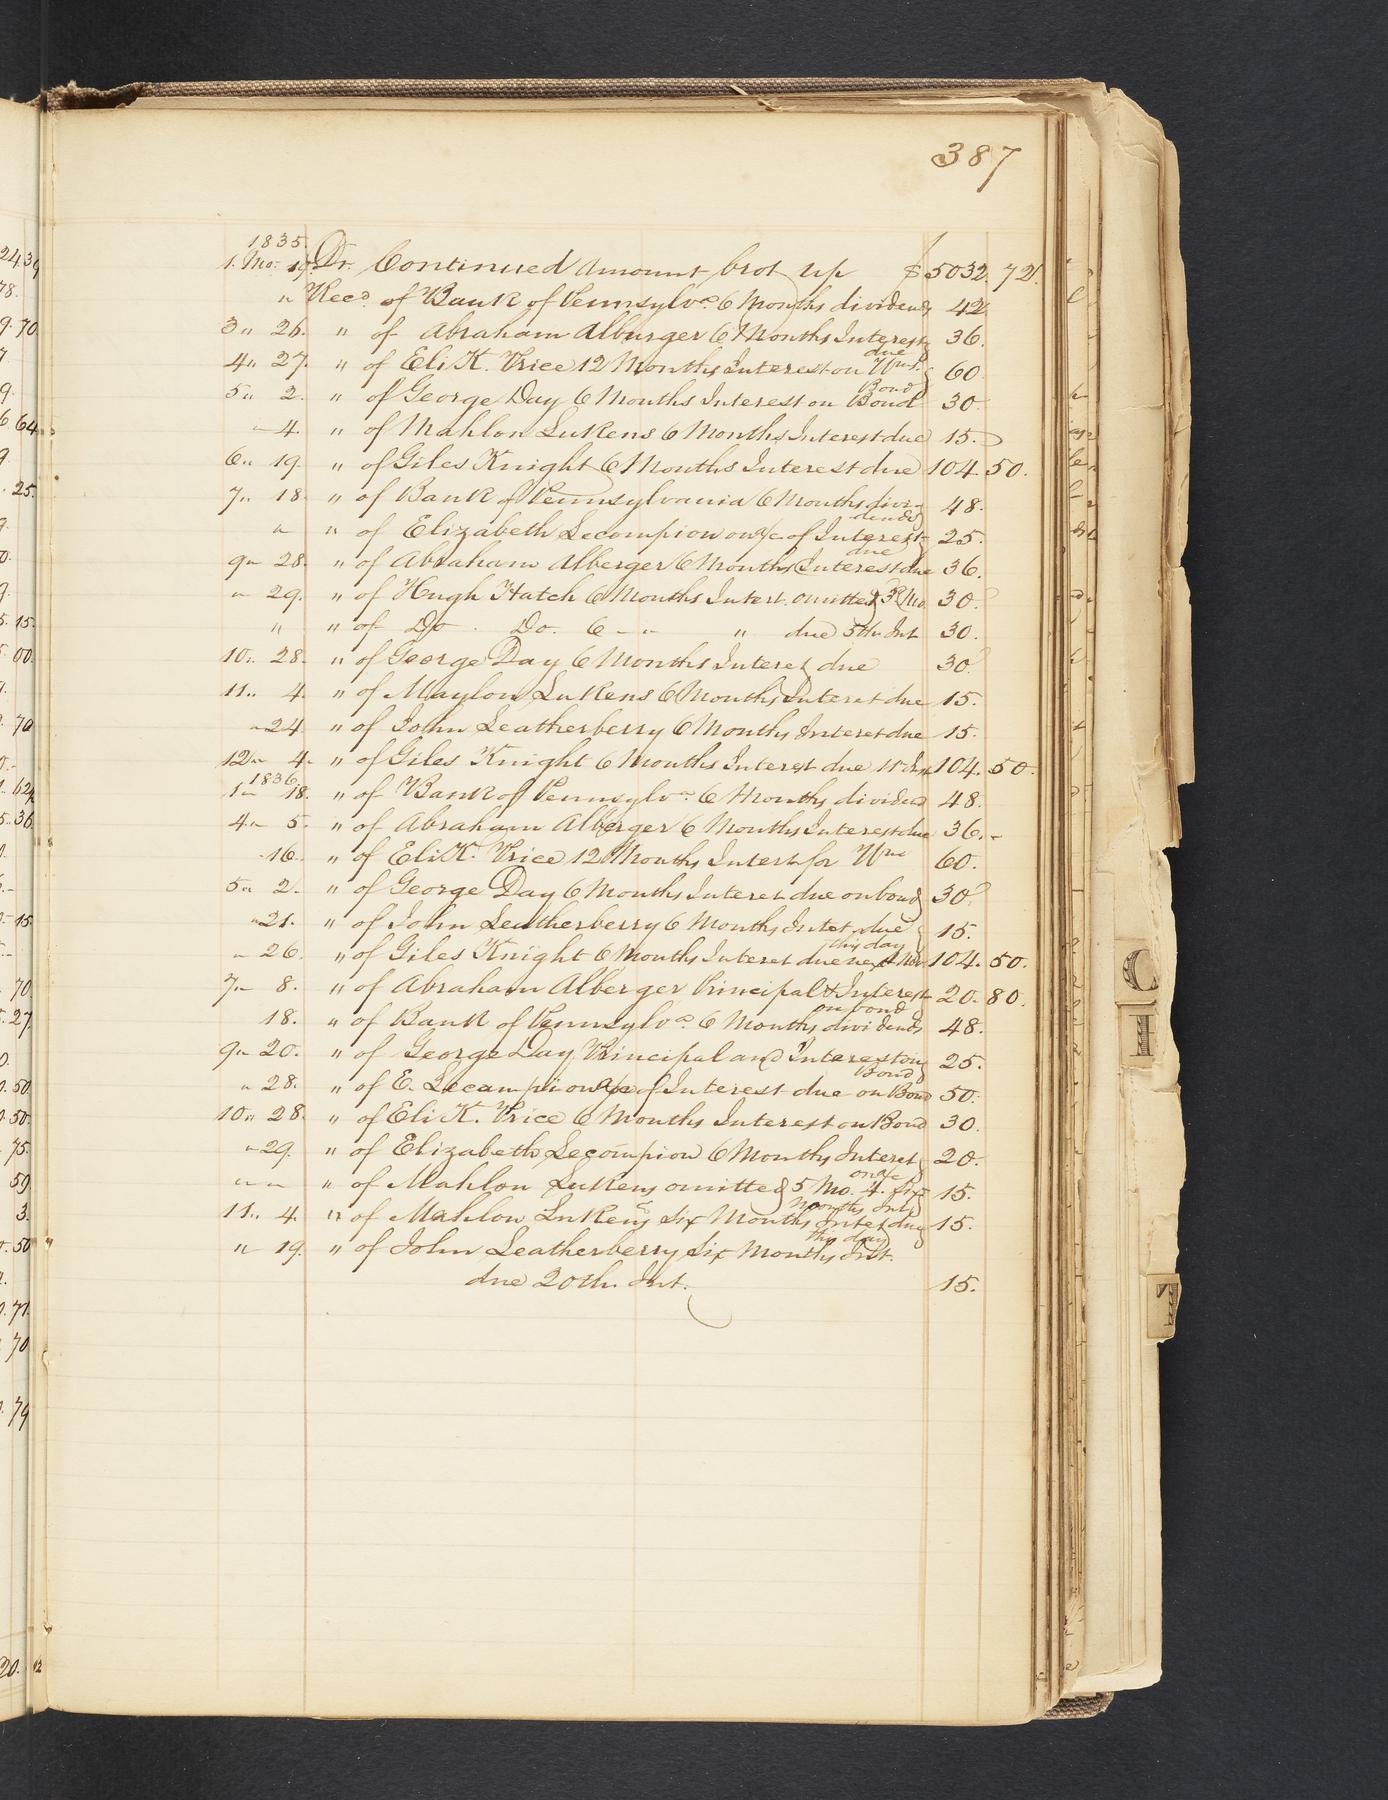 387
1835.
1. Mo. 19. Dr. Continued amount brot up $5032.72.
" Recd. of Bank of Pennsylva. 6 Months dividend 42
3 " 26. " of Abraham Alburger 6 Months Interest due 36.
4 " 27. " of Eli K. Price 12 Months Interest on Wms. Bond 60
5 " 2. " of George Day 6 Months Interest on Bond 30
" 4. " of Mahlon Lukens 6 Months Interest due 15.
6 " 19. " of Giles Knight 6 Months Interest due 104 50.
7 " 18. " of Bank of Pennsylvania 6 Months dividends 48.
" " of Elizabeth Lecompion on a/c of Interest due 25.
9 " 28. " of Abraham Alberger 6 Months Interest due 36.
" 29. " of Hugh Hatch 6 Months Intert. omitted 3d Mo 30
" " of Do. Do. 6 " " due 5th Int 30.
10 " 28. " of George Day 6 Months Interet due 30
11 " 4. " of Maylon Lukens 6 Months Interet due 15.
" 24. " of John Leatherberry 6 Months Interet due 15.
12 " 4. " of Giles Knight 6 Months Interest due 104. 50.
1836.
1 " 18. " of Bank of Pennsylva. 6 Months dividend 48.
4 " 5. " of Abraham Alberger 6 Months Interest due 36.-
" 16. " of Eli K. Price 12 Months Interst for Wms 60.
5 " 2. " of George Day 6 Months Interet due on bond 30
" 21. " of John Leatherberry 6 Months Intet due this day 15.
" 26. " of Giles Knight 6 Months Interet due next Mo. 104. 50.
7 " 8. " of Abraham Alberger Principal & Interest on bond 20. 80.
18. " of Bank of Pennsylva. 6 Months dividends 48.
9 " 20. " of George Day Principal and Interest on Bond 25.
" 28. " of E. Lecampion a/c of Interest due on Bond 50.
10 " 28. " of Eli K. Price 6 Months Interest on Bond 30.
" 29. " of Elizabeth Lecompion 6 Months Interet on a/c 20.
" " " of Mahlon Lukens omitted 5 Mo. 4. Six Months Int 15.
11 " 4. " of Mahlon Lukens Six Months Intet due this day 15.
" 19. " of John Leatherberry Six Months Int.
due 20th. Int. 15.
C
I
T